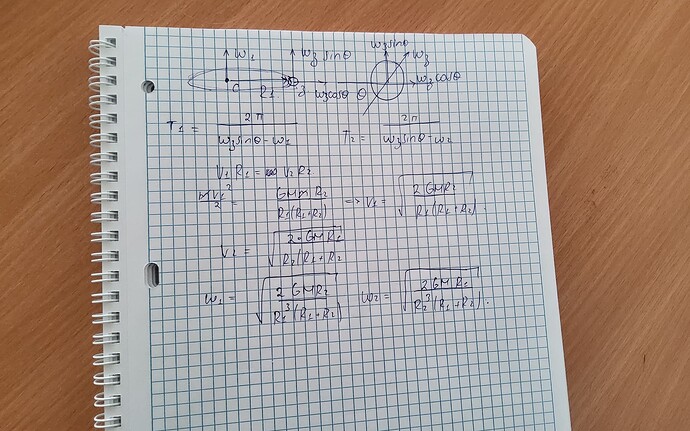 ω₁ ω₃ sinθ ω₃ sinθ ω₃
C R₁ 3 ω₃cosθ θ ω₃ cosθ
T₁ = 2π / (ω₃sinθ-ω₁) T₂ = 2π / (ω₃sinθ-ω₂)
V₁ R₁ = V₂ R₂
mV₁²/2 = GMmR₂ / (R₁(R₁+R₂)) => V₁ = √(2GMR₂ / (R₁(R₁+R₂))).
V₂ = √(2·GMR₁ / (R₂(R₁+R₂)))
ω₁ = √(2GMR₂ / (R₁³(R₁+R₂))) ω₂ = √(2GMR₁ / (R₂³(R₁+R₂))).